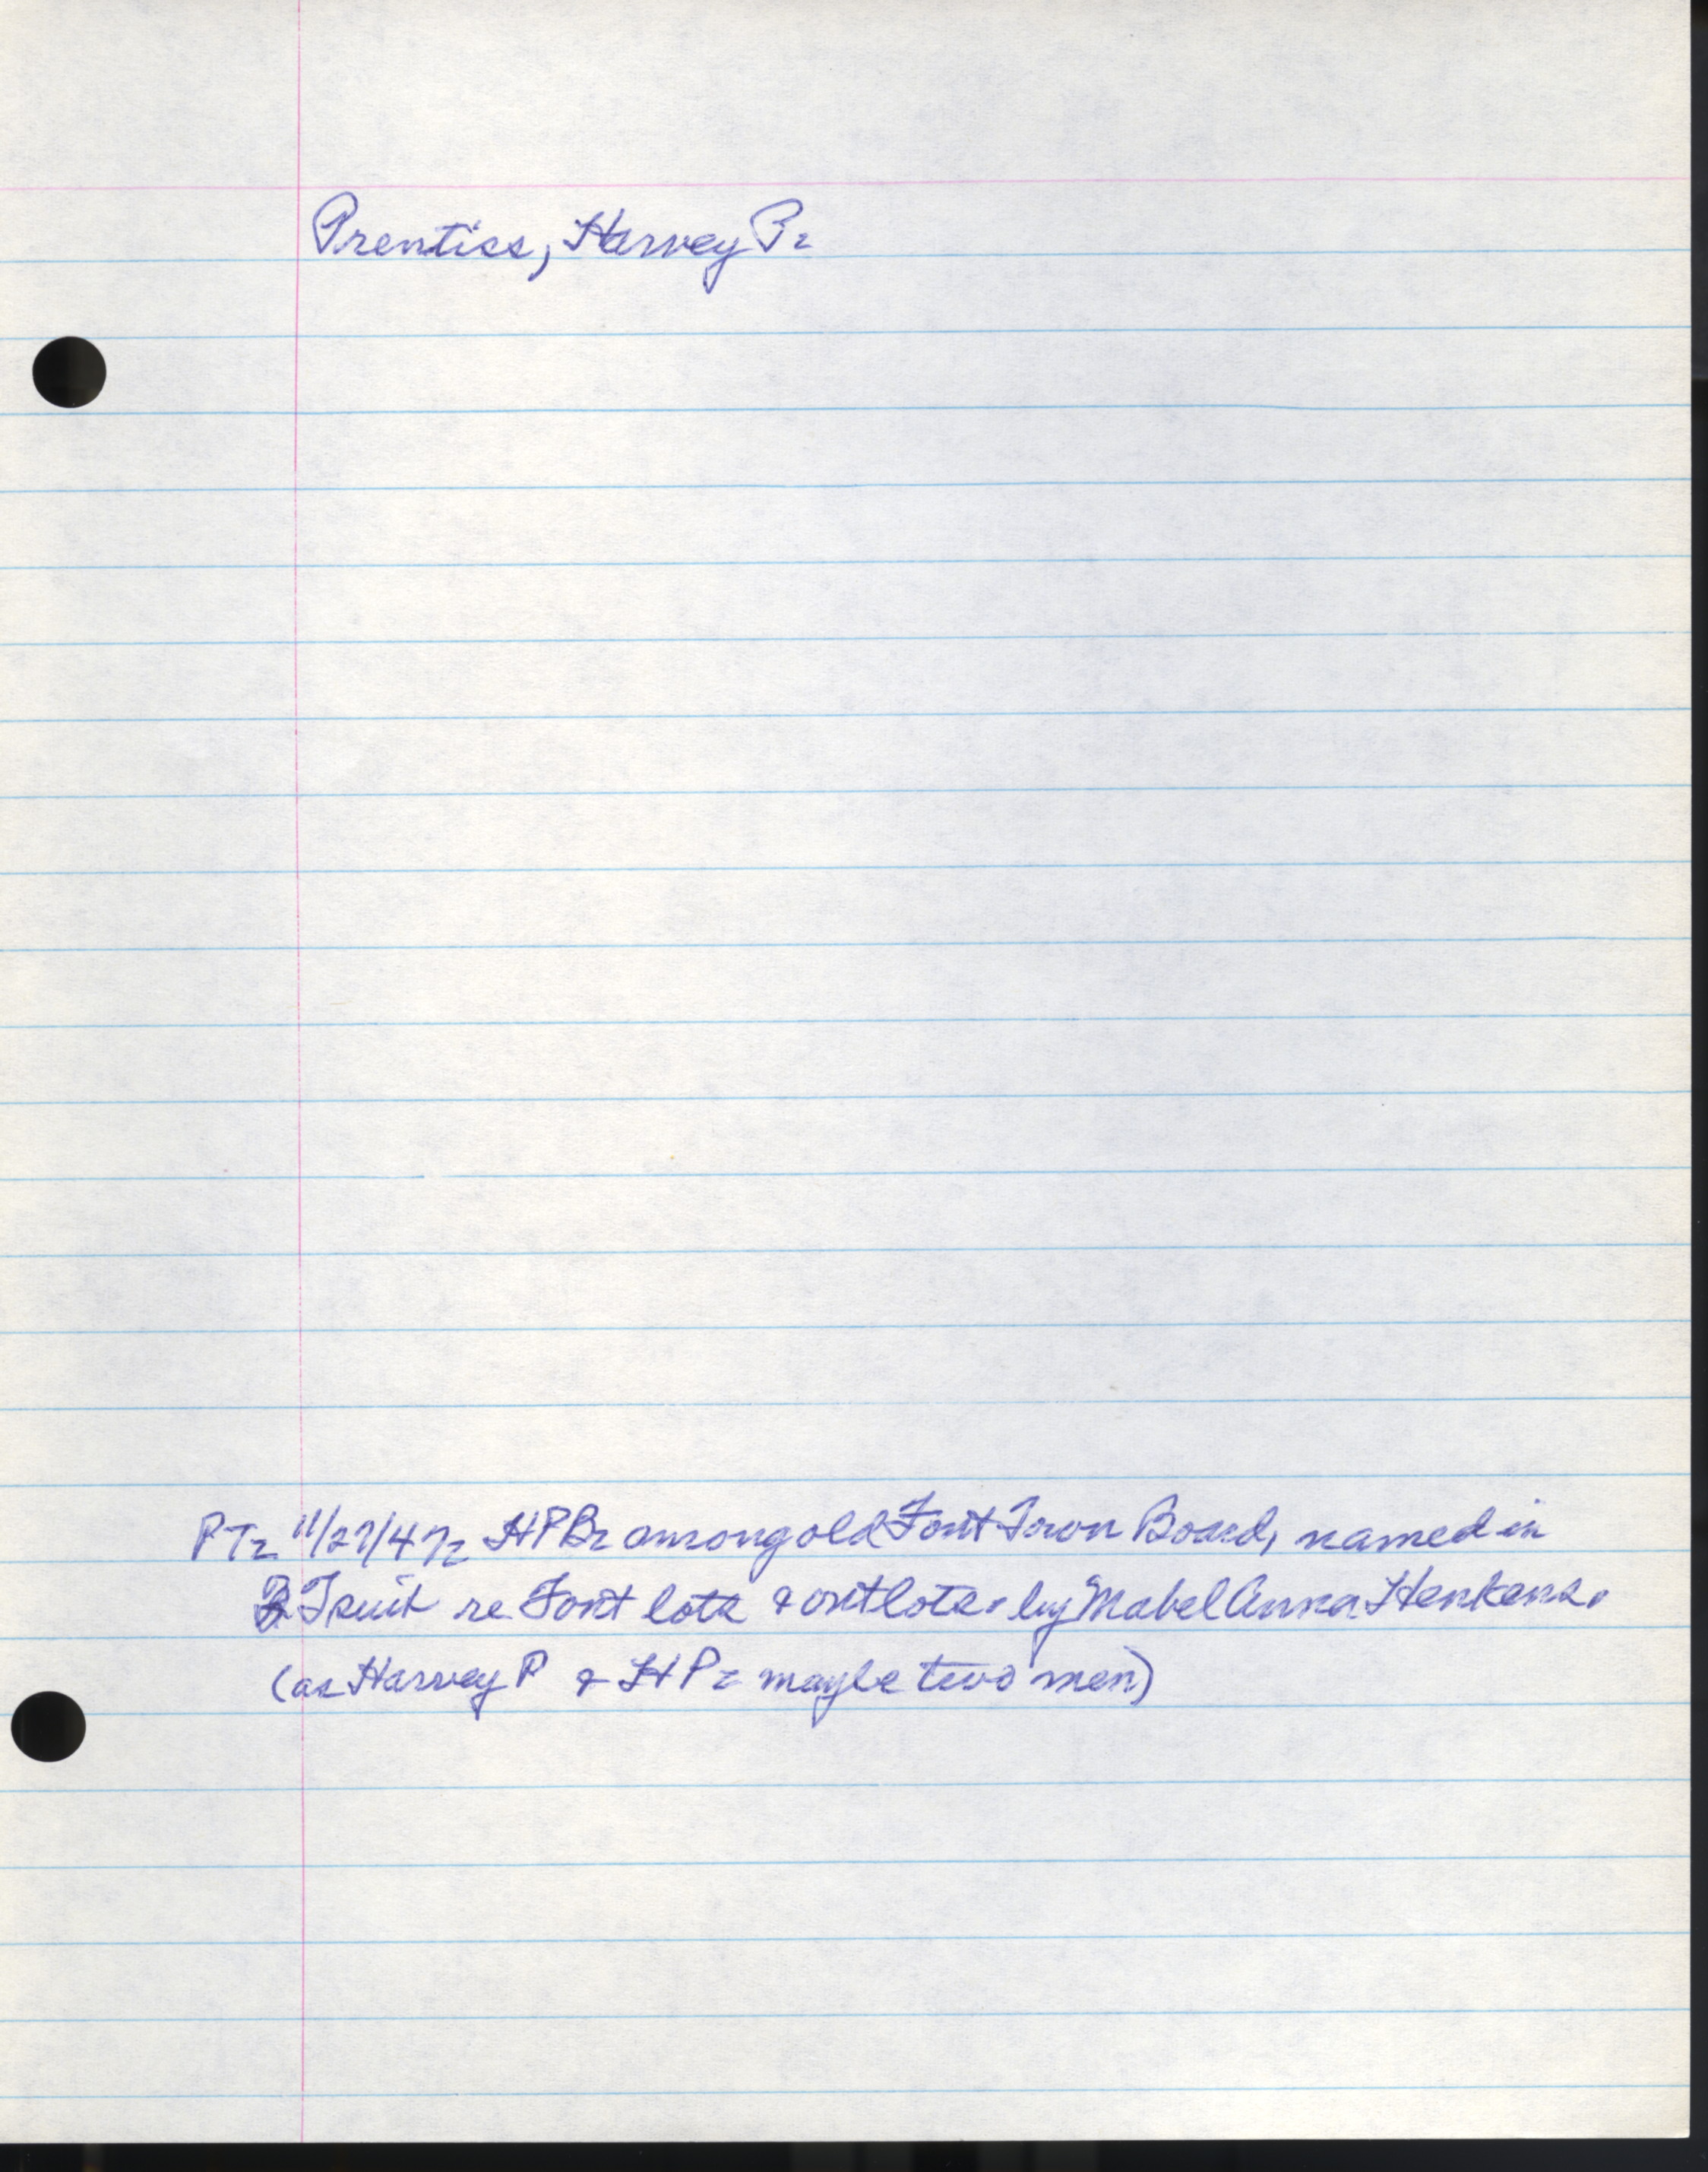 Prentiss, Harvey P.
PT. 11/27/47. HPP. among old Font Town Board, named in
QT suit re Font lots & outlots. by Mabel Anna Henkens.
(as Harvey P & HP. maybe two men)